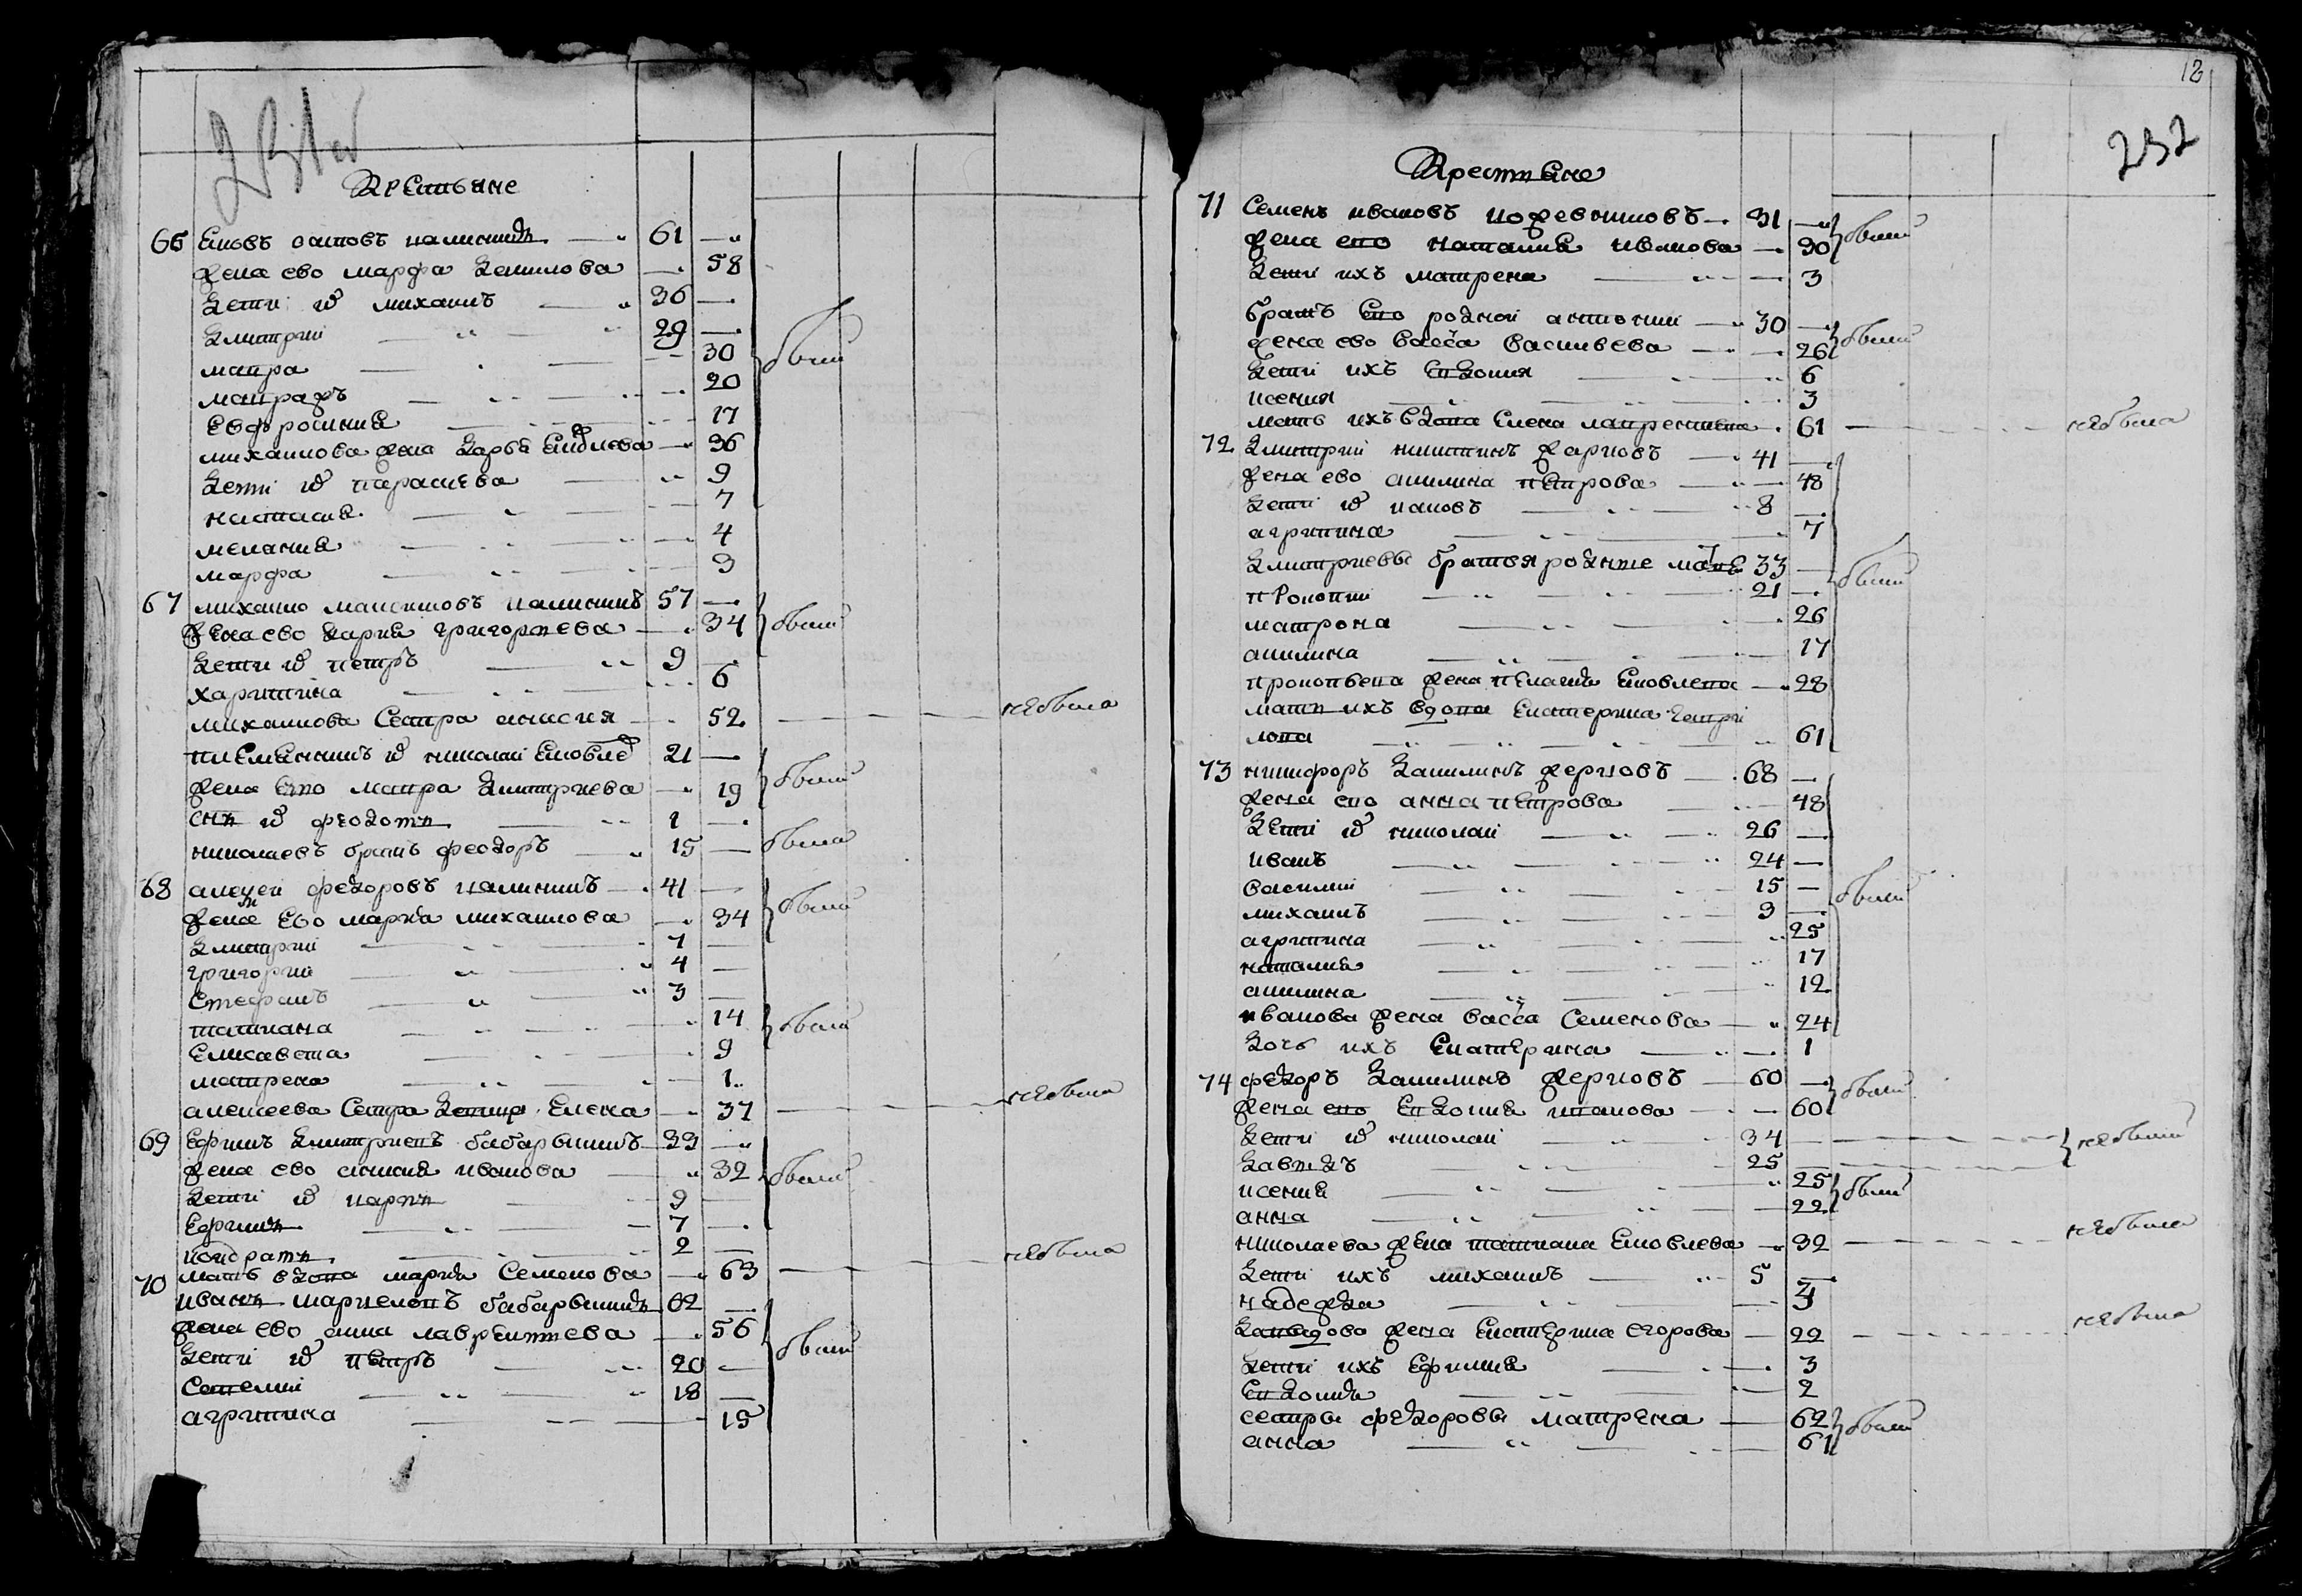 Крестьяне
66 Яковъ саповъ калининъ 61
жена ево марфа данилова 58
дети их михаилъ 36
дмитрий 29
мавра 30
20
Евфросиния 17
михаилова жена дарья 36
дети их парасковья 9
настасия 7
мелания 4
марфа 3
67 михаило калининъ 57 были
жена ево мария григорьева 34
дети их петръ 9
харитина 6
михаилова сестра анисия 52 не была
племянникъ их николай 21 были
жена ево мавра дмитриева 19
снъ их федотъ 1
николаевъ братъ феодоръ 15 была
68 алексей федоровъ калининъ 41 были
жена ево мария михаилова 34
дмитрий 7
григорий 4
стефанъ 3
татиана 14 были
елисавета 9
матрена 1
алексеева сестра елена 37 не была
69 ефимъ дмитриевъ бабарыкинъ 33
жена ево анисия иванова 32 были
дети их карпъ 9
ефимъ 7
кондратъ 2
мать вдова мария семенова 63 не была
70 иванъ маркеловъ бабарыкинъ 62
жена ево анна лаврентьева 56 были
дети их петръ 20
савелий 18
агрипина 15
12
232
Крестьяне
71 Семенъ ивановъ 31
жена ево наталия иванова 30 были
дети ихъ матрена 3
братъ ево родной антоний 30
жена ево васса васильева 26 были
дети ихъ евдокия 6
ксения 3
мать ихъ вдова елена лаврентьева 61 не была
72 дмитрий никитинъ жарковъ 41
жена ево акилина петрова 48
дети их яковъ 8
агрипина 7
дмитриевы братья родные 33
прокопий 21 были
матрона 26
акилина 17
прокопьева жена пелагия яковлева 28
мать ихъ вдова екатерина гаври
лова 61
73 никифоръ данилинъ жерновъ 68
жена ево анна петрова 48
дети их николай 26
иванъ 24
василий 15 были
михаилъ 3
агрипина 25
наталия 17
акилина 12
иванова жена васса семенова 24
дочь ихъ екатерина 1
74 федоръ данилинъ жерновъ 60 были
жена ево евдокия 60
дети их николай 34 не были
давыдъ 25
ксения 25 были
анна 22
николаева жена татиана яковлева 32 не была
дети ихъ михаилъ 5
надежда 3
давыдово жена екатерина егорова 22 не была
дети ихъ ефимия 3
евдокия 2
сестры федоровы матрена 62 были
анна 61